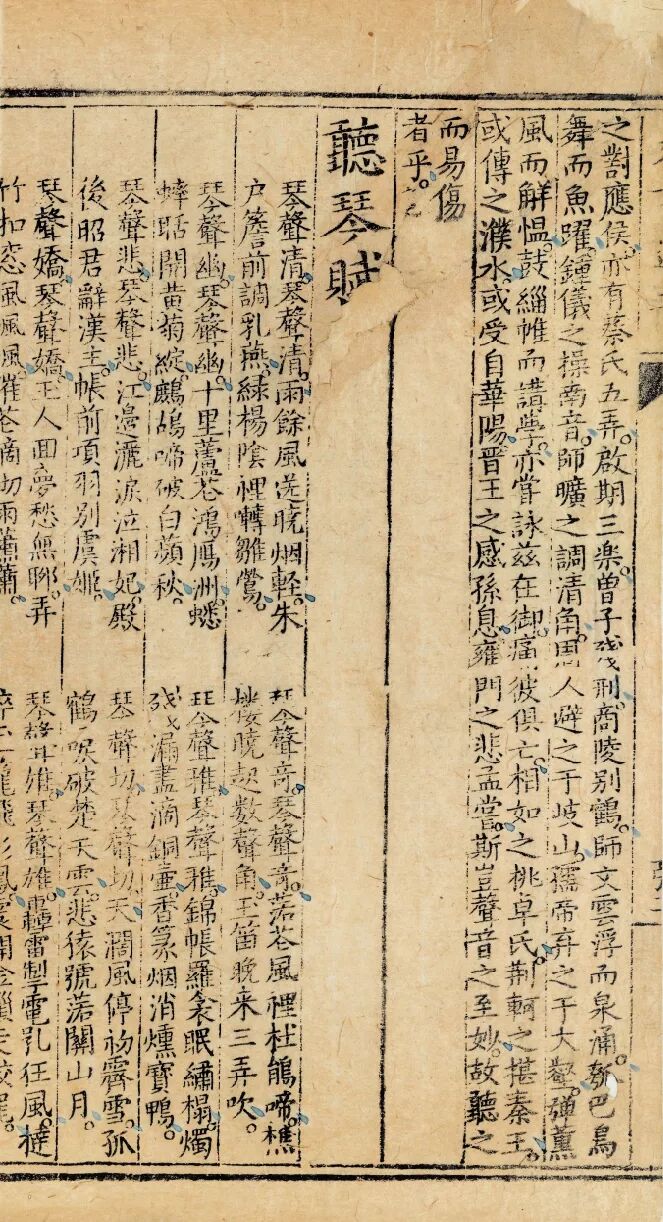 之對應侯。亦有蔡氏五弄。啟期三楽。曽子殘刑。商陵別鶴。師文雲浮而泉涌。瓠巴鳥
舞而魚躍。鍾儀之操南音。師曠之調清角。周人避之于岐山。孺帝弃之于大壑。彈薰
風而解愠。鼓緇帷而講學。亦嘗詠兹在御。痛彼俱亡。相如之桃卓氏。荆軻之揕秦王。
或傳之濮水。或受自華陽。晋王之感孫息。雍門之悲孟嘗。斯豈聲音之至妙。故聽之
而易傷
者乎。
聽琴賦
琴聲清。琴聲清。雨餘風送曉烟軽。朱
戶簷前調乳燕。緑楊陰裡囀雛鶯。
琴聲竒。琴聲竒。落花風裡杜鵑啼。樵
楼曉起数聲角。玉笛晚来三弄吹。
琴聲幽。琴聲幽。十里蘆花鴻鴈洲。蟋
蟀聒開黄菊綻。鷓鴣啼破白蘋秋。
琴聲雅。琴聲雅。錦帳羅衾眠繡榻。燭
殘漏盡滴銅壷。香篆烟消燻寶鴨。
琴聲悲。琴聲悲。江邊灑淚泣湘妃。殿
後昭君辭漢主。帳前項羽別虞姬。
琴聲切。琴聲切。天濶風停初霽雪。孤
鶴唳破楚天雲。悲猿號落關山月。
琴聲嬌。琴聲嬌。玉人回夢愁無聊。弄
竹扣窓風風風。催花滴切雨蕭蕭。
琴聲雄。琴聲雄。轟雷掣電乳狂風。撻